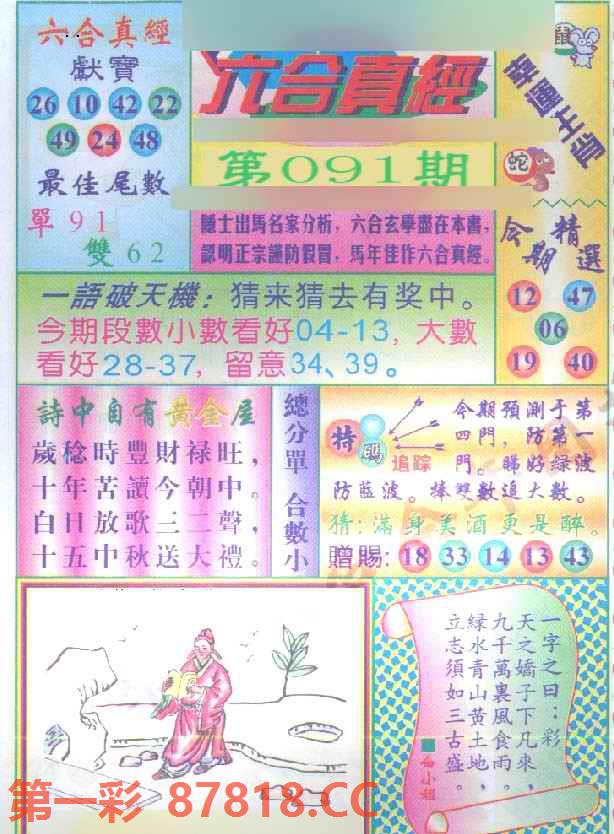 六合真經
獻寶
26 10 42 22
49 24 48
最佳尾數
單91
雙62
六合真經
第091期
隱士出馬名家分析，六合玄學盡在本書，
認明正宗謹防假冒，馬年佳作六合真經。
鼠
幸運生肖
蛇
今期精選
12 47
06
19 40
一語破天機：猜来猜去有奖中。
今期段數小數看好04-13，大數
看好28-37，留意34、39。
詩中自有黃金屋
歲稔時豐財禄旺，
十年苦讀今朝中。
白日放歌三二聲，
十五中秋送大禮。
總分單 合數小
特碼
追踪
今期預測于第
四門，防第一
門。睇好绿波
防藍波。捧雙數追大數。
猜：滿身美酒更是醉。
贈賜：18 33 14 13 43
一字之曰：彩
天之嬌子下凡來，
九千萬裏風食雨。
緑水青山黄土地，
立志須如三古盛。
第一彩 87818.CC